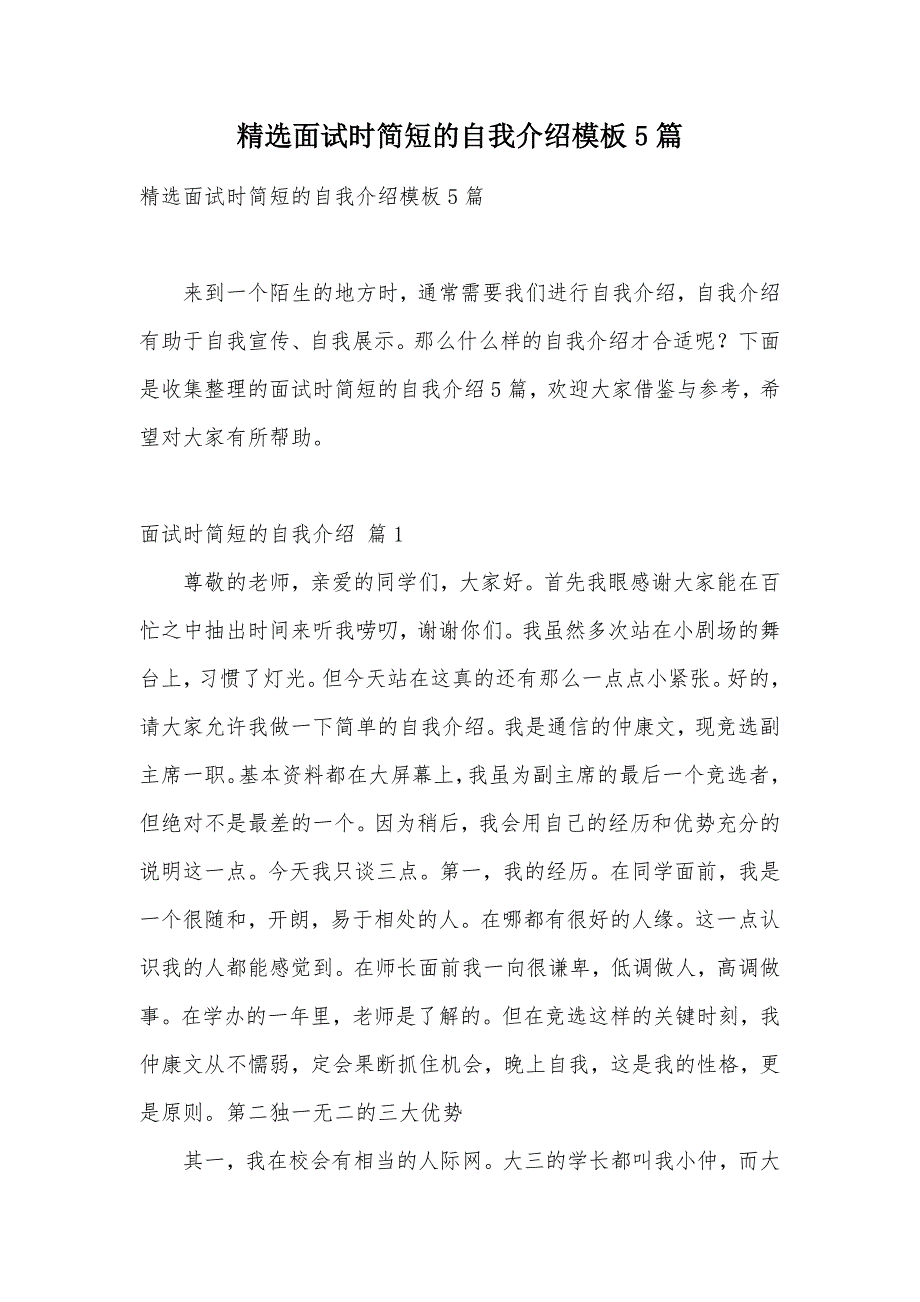 精选面试时简短的自我介绍模板 5 篇
精选面试时简短的自我介绍模板 5 篇
来到一个陌生的地方时，通常需要我们进行自我介绍，自我介绍
有助于自我宣传、自我展示。那么什么样的自我介绍才合适呢？下面
是收集整理的面试时简短的自我介绍 5 篇，欢迎大家借鉴与参考，希
望对大家有所帮助。
面试时简短的自我介绍 篇 1
尊敬的老师，亲爱的同学们，大家好。首先我眼感谢大家能在百
忙之中抽出时间来听我唠叨，谢谢你们。我虽然多次站在小剧场的舞
台上，习惯了灯光。但今天站在这真的还有那么一点点小紧张。好的，
请大家允许我做一下简单的自我介绍。我是通信的仲康文，现竞选副
主席一职。基本资料都在大屏幕上，我虽为副主席的最后一个竞选者，
但绝对不是最差的一个。因为稍后，我会用自己的经历和优势充分的
说明这一点。今天我只谈三点。第一，我的经历。在同学面前，我是
一个很随和，开朗，易于相处的人。在哪都有很好的人缘。这一点认
识我的人都能感觉到。在师长面前我一向很谦卑，低调做人，高调做
事。在学办的一年里，老师是了解的。但在竞选这样的关键时刻，我
仲康文从不懦弱，定会果断抓住机会，晚上自我，这是我的性格，更
是原则。第二独一无二的三大优势
其一，我在校会有相当的人际网。大三的学长都叫我小仲，而大